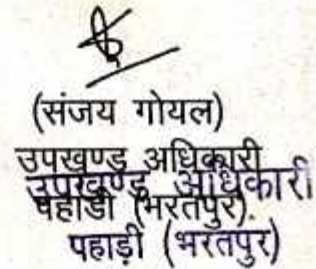 (संजय गोयल)
उपखण्ड अधिकारी
उपखण्ड अधिकारी
पहाडी (भरतपुर).
पहाड़ी (भरतपुर)